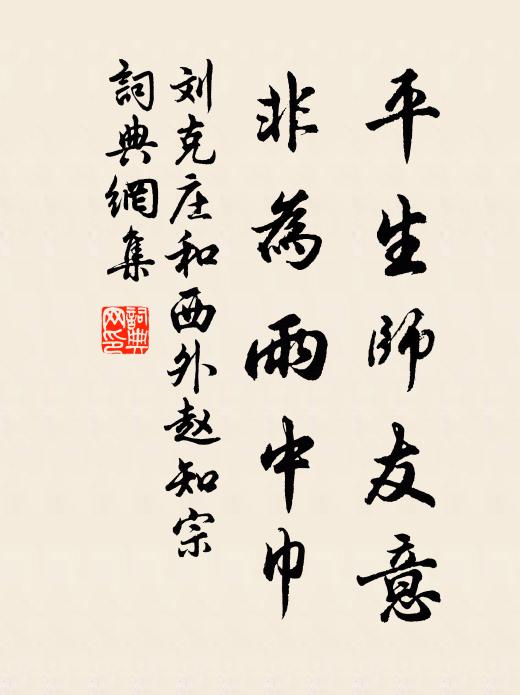 平生師友意
非為雨中巾
刘克庄和西外赵知宗
詞典網集
詞典
网印